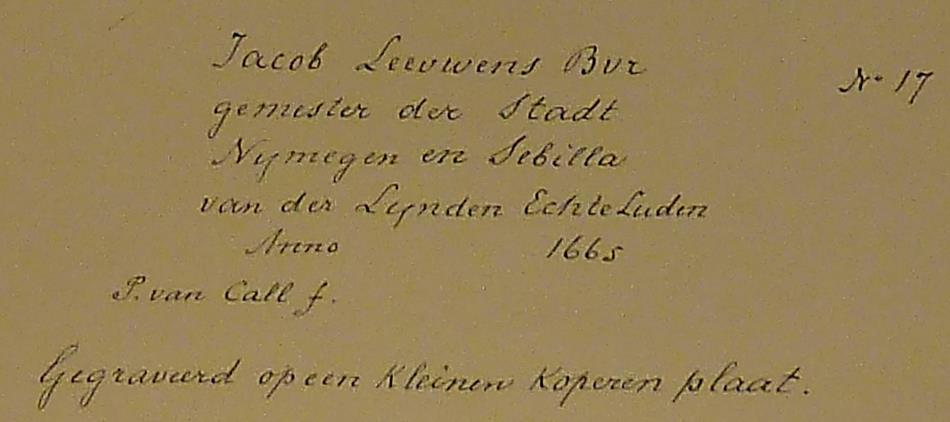 Jacob Leeuwens Bvr
No 17
gemester der Stadt
Nymegen en Sebilla
van der Lynden Echte Luden
Anno 1665
P. van Call f.
Gegraveerd op een Kleinen Koperen plaat.